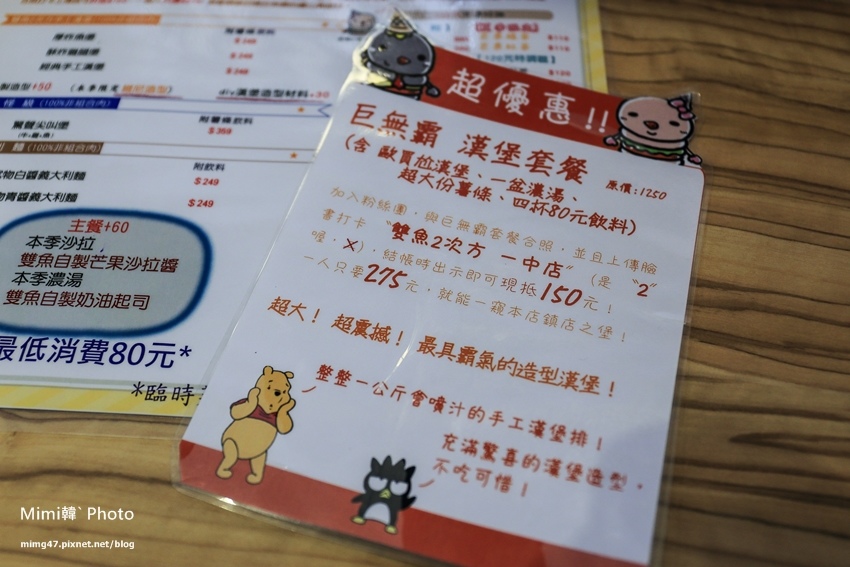 附薯條飲料
爆炸燒堡
$249
酥炸雞腿堡
$249
經典手工漢堡
$249
+50
div漢堡造型材料+30
(100%非組合肉)
附薯條飲料
驚聲尖叫堡
$359
麵(100%非組合肉)
附飲料
白醬義大利麵
$249
青醬義大利麵
$249
主餐+60
本季沙拉
雙魚自製芒果沙拉醬
本季濃湯
雙魚自製奶油起司
最低消費80元*
*臨時
超優惠!!
巨無霸 漢堡套餐
原價:1250
(含 歐買尬漢堡、一盆濃湯、
超大份薯條、四杯80元飲料)
加入粉絲團,與巨無霸套餐合照,並且上傳臉
書打卡 "雙魚2次方 一中店" (是 "2"
喔,x),結帳時出示即可現抵150元!
一人只要275元,就能一窺本店鎮店之堡!
超大!超震撼!最具霸氣的造型漢堡!
整整一公斤會噴汁的手工漢堡排!
充滿驚喜的漢堡造型,
不吃可惜!
Mimi韓` Photo
mimg47.pixnet.net/blog